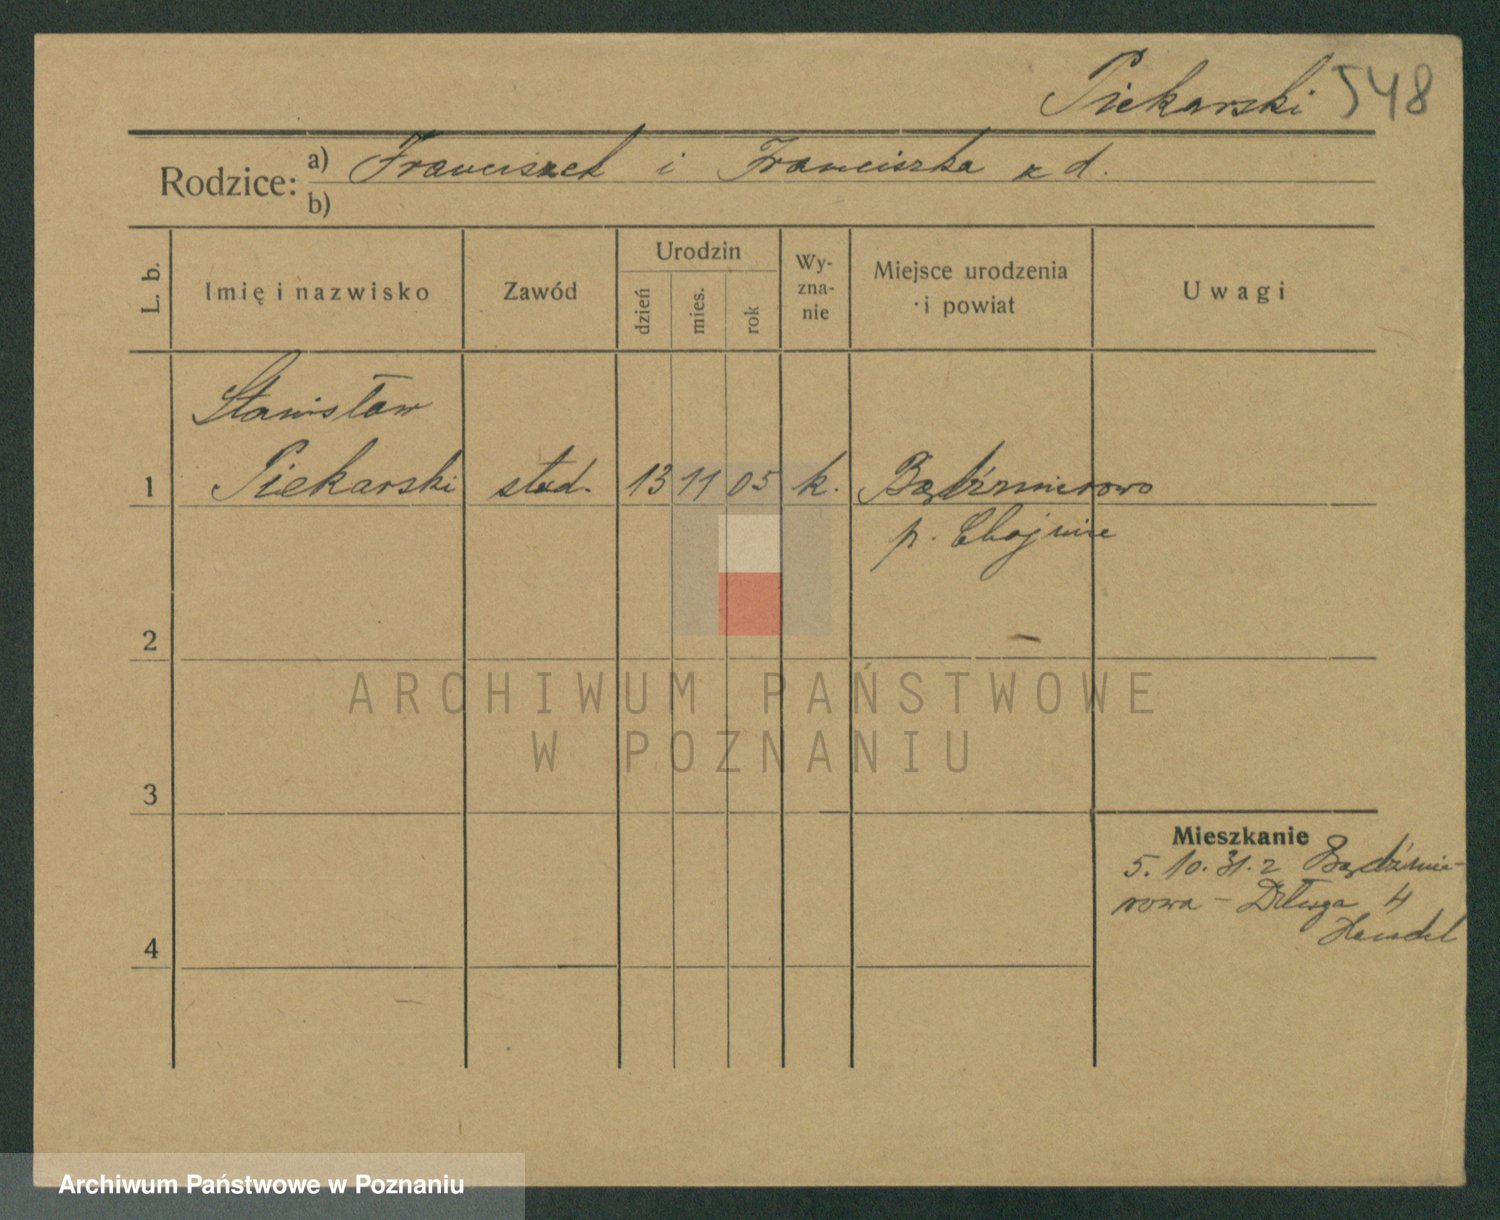 Piekarski 548
Rodzice: a) Franciszek i Franciszka z d.
b)
L. b. Imię i nazwisko Zawód Urodzin dzień mies. rok Wy-zna-nie Miejsce urodzenia i powiat Uwagi
Stanisław
1 Piekarski stud. 13 11 05 k. Bądźmierowo
p. Chojnice
2
ARCHIWUM PAŃSTWOWE
W POZNANIU
3
Mieszkanie
5. 10. 31. z Bądźmie-
rowa - Długa 4
4
Archiwum Państwowe w Poznaniu